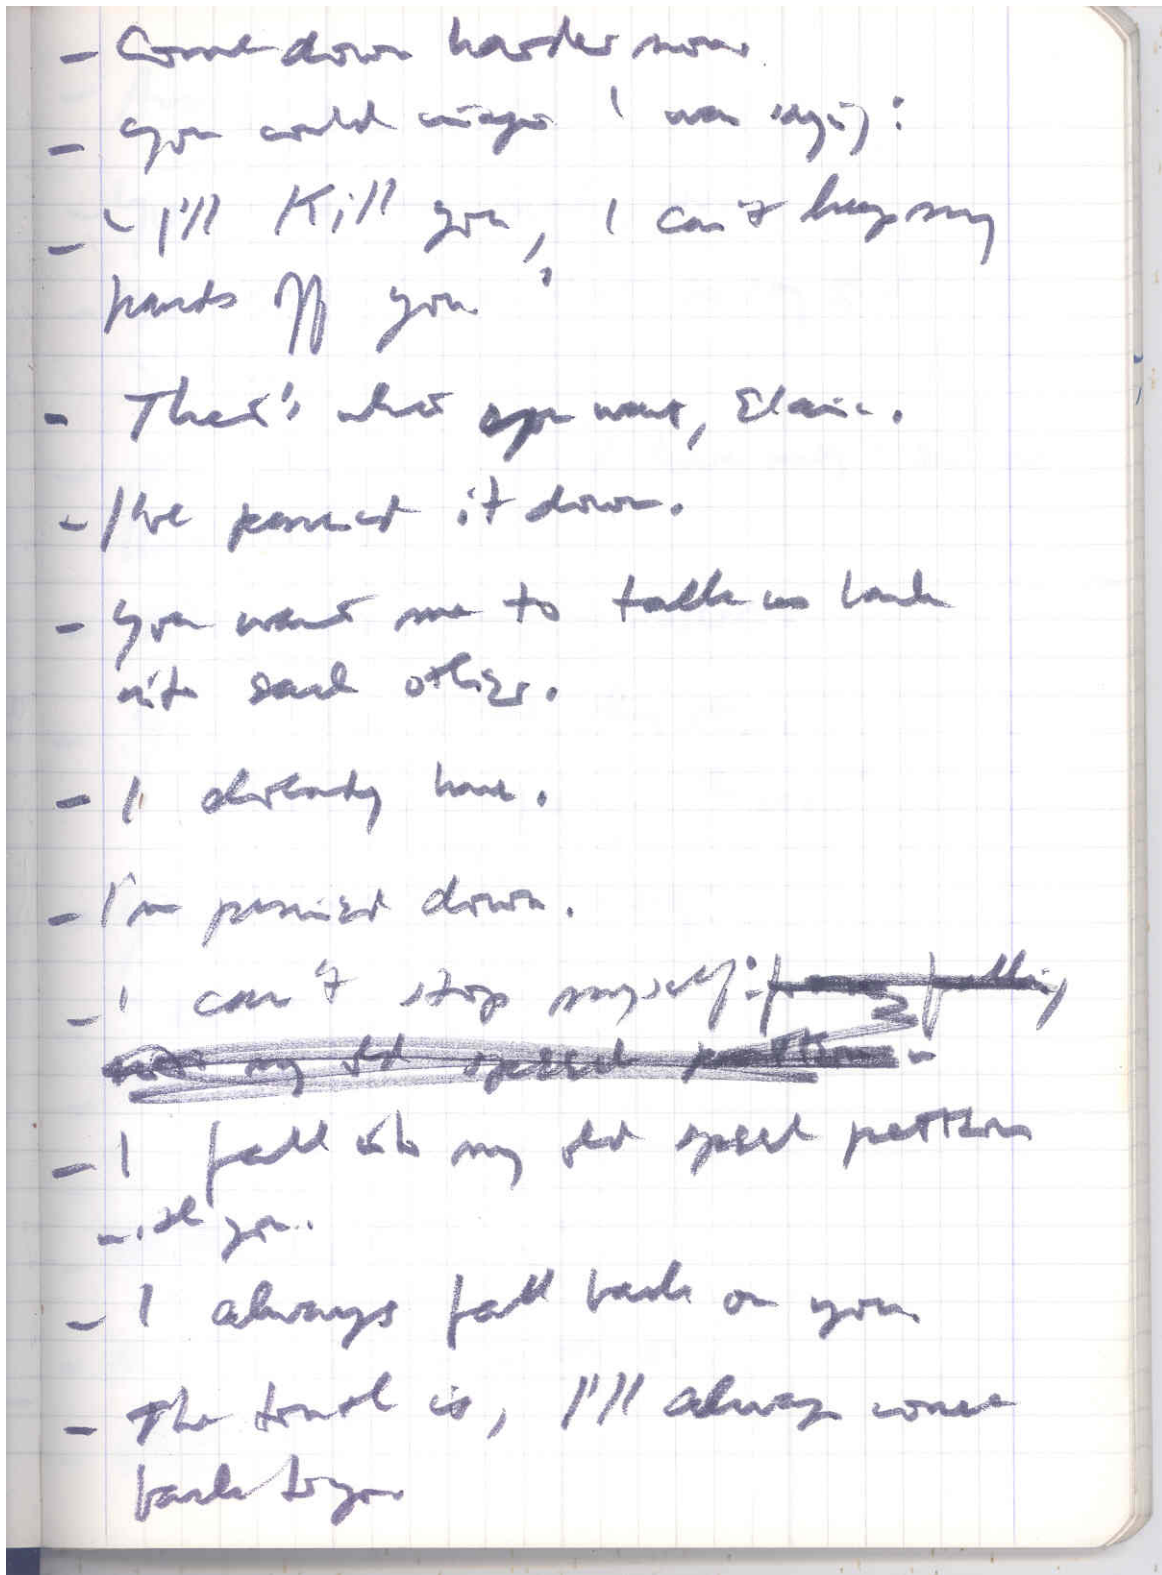 - Come down harder now.
- You could imagine I was saying:
- "I'll Kill you, I can't keep my
hands off you"
- That's what you want, Elaine.
- I've penned it down.
- You want me to talk us back
into each other.
- I already have.
- I'm penned down.
- I can't stop myself: falling
my old speech pattern -
- I fall into my old speech pattern
with you.
- I always fall back on you
- The truth is, I'll always come
back to you